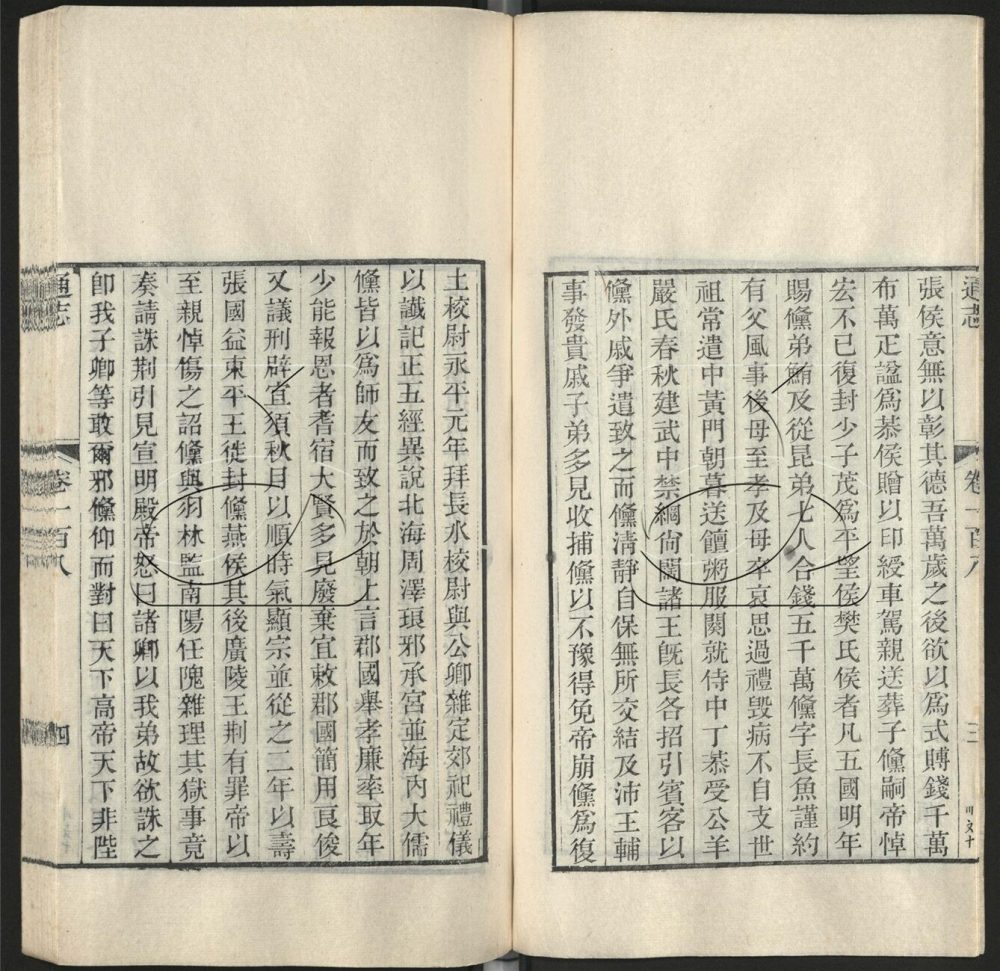 通志
卷一百八
三
張侯意無以彰其德吾萬歲之後欲以爲式賻錢千萬
布萬疋謚爲恭侯贈以印綬車駕親送葬子儵嗣帝悼
宏不已復封少子茂爲平望侯樊氏侯者凡五國明年
賜儵弟鮪及從昆弟七人合錢五千萬儵字長魚謹約
有父風事後母至孝及母卒哀思過禮毀病不自支世
祖常遣中黃門朝暮送饘粥服闋就侍中丁恭受公羊
嚴氏春秋建武中禁網尙闊諸王旣長各招引賓客以
儵外戚爭遣致之而儵清靜自保無所交結及沛王輔
事發貴戚子弟多見收捕儵以不豫得免帝崩儵爲復
土校尉永平元年拜長水校尉與公卿雜定郊祀禮儀
以讖記正五經異說北海周澤琅邪承宮並海內大儒
儵皆以爲師友而致之於朝上言郡國舉孝廉率取年
少能報恩者耆宿大賢多見廢棄宜敕郡國簡用良俊
又議刑辟宜須秋月以順時氣顯宗並從之二年以壽
張國益東平王徙封儵燕侯其後廣陵王荆有罪帝以
至親悼傷之詔儵與羽林監南陽任隗雜理其獄事竟
奏請誅荆引見宣明殿帝怒曰諸卿以我弟故欲誅之
卽我子卿等敢爾邪儵仰而對曰天下高帝天下非陛
通志
卷一百八
四